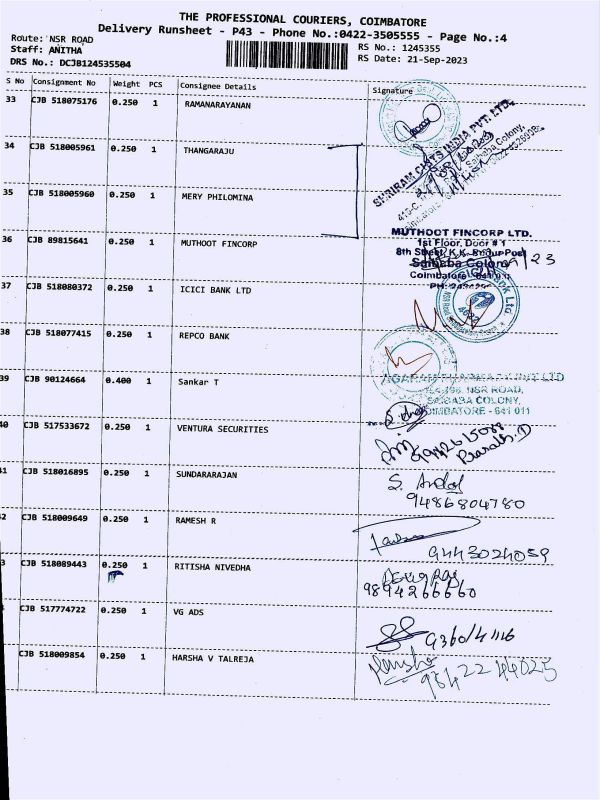 THE PROFESSIONAL COURIERS, COIMBATORE
Delivery Runsheet - P43 - Phone No.:0422-3505555 - Page No.:4
Route: NSR ROAD
Staff: ANITHA
DRS No.: DCJB124535504
RS No.: 1245355
RS Date: 21-Sep-2023
S No Consignment No Weight PCS Consignee Details Signature
33 CJB 518075176 0.250 1 RAMANARAYANAN
34 CJB 518005961 0.250 1 THANGARAJU
SHRIRAM CHITS INDIA PVT. LTD.
Saibaba Colony,
35 CJB 518005960 0.250 1 MERY PHILOMINA
36 CJB 89815641 0.250 1 MUTHOOT FINCORP
MUTHOOT FINCORP LTD.
1st Floor, Door # 1
8th Street, K.K. Pudur Post
Saibaba Colony
Coimbatore - 641 011
37 CJB 518080372 0.250 1 ICICI BANK LTD
38 CJB 518077415 0.250 1 REPCO BANK
39 CJB 90124664 0.400 1 Sankar T
NSR ROAD,
SAIBABA COLONY,
COIMBATORE - 641 011
40 CJB 517533672 0.250 1 VENTURA SECURITIES
41 CJB 518016895 0.250 1 SUNDARARAJAN
9486804780
42 CJB 518009649 0.250 1 RAMESH R
9443024059
3 CJB 518089443 0.250 1 RITISHA NIVEDHA
9894266660
CJB 517774722 0.250 1 VG ADS
CJB 518009854 0.250 1 HARSHA V TALREJA
98422 44025